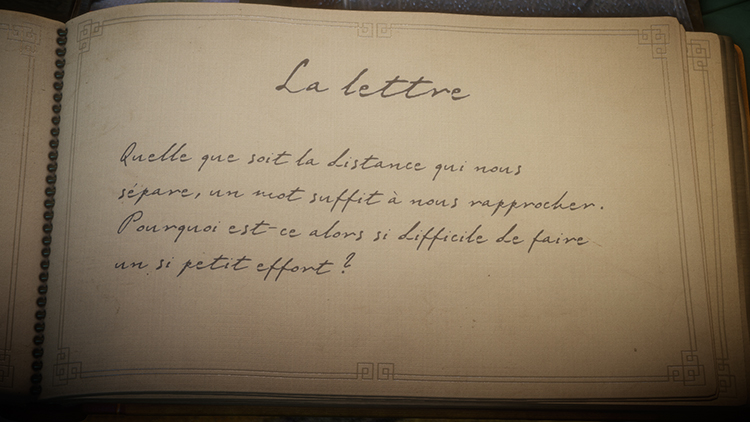 La lettre
Quelle que soit la distance qui nous
sépare, un mot suffit à nous rapprocher.
Pourquoi est-ce alors si difficile de faire
un si petit effort ?